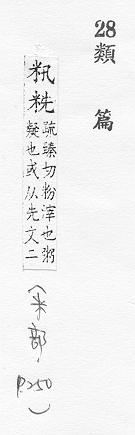 28 類篇
籸
疏臻切粉滓也粥
凝也或从先文二
(米部, P.250)